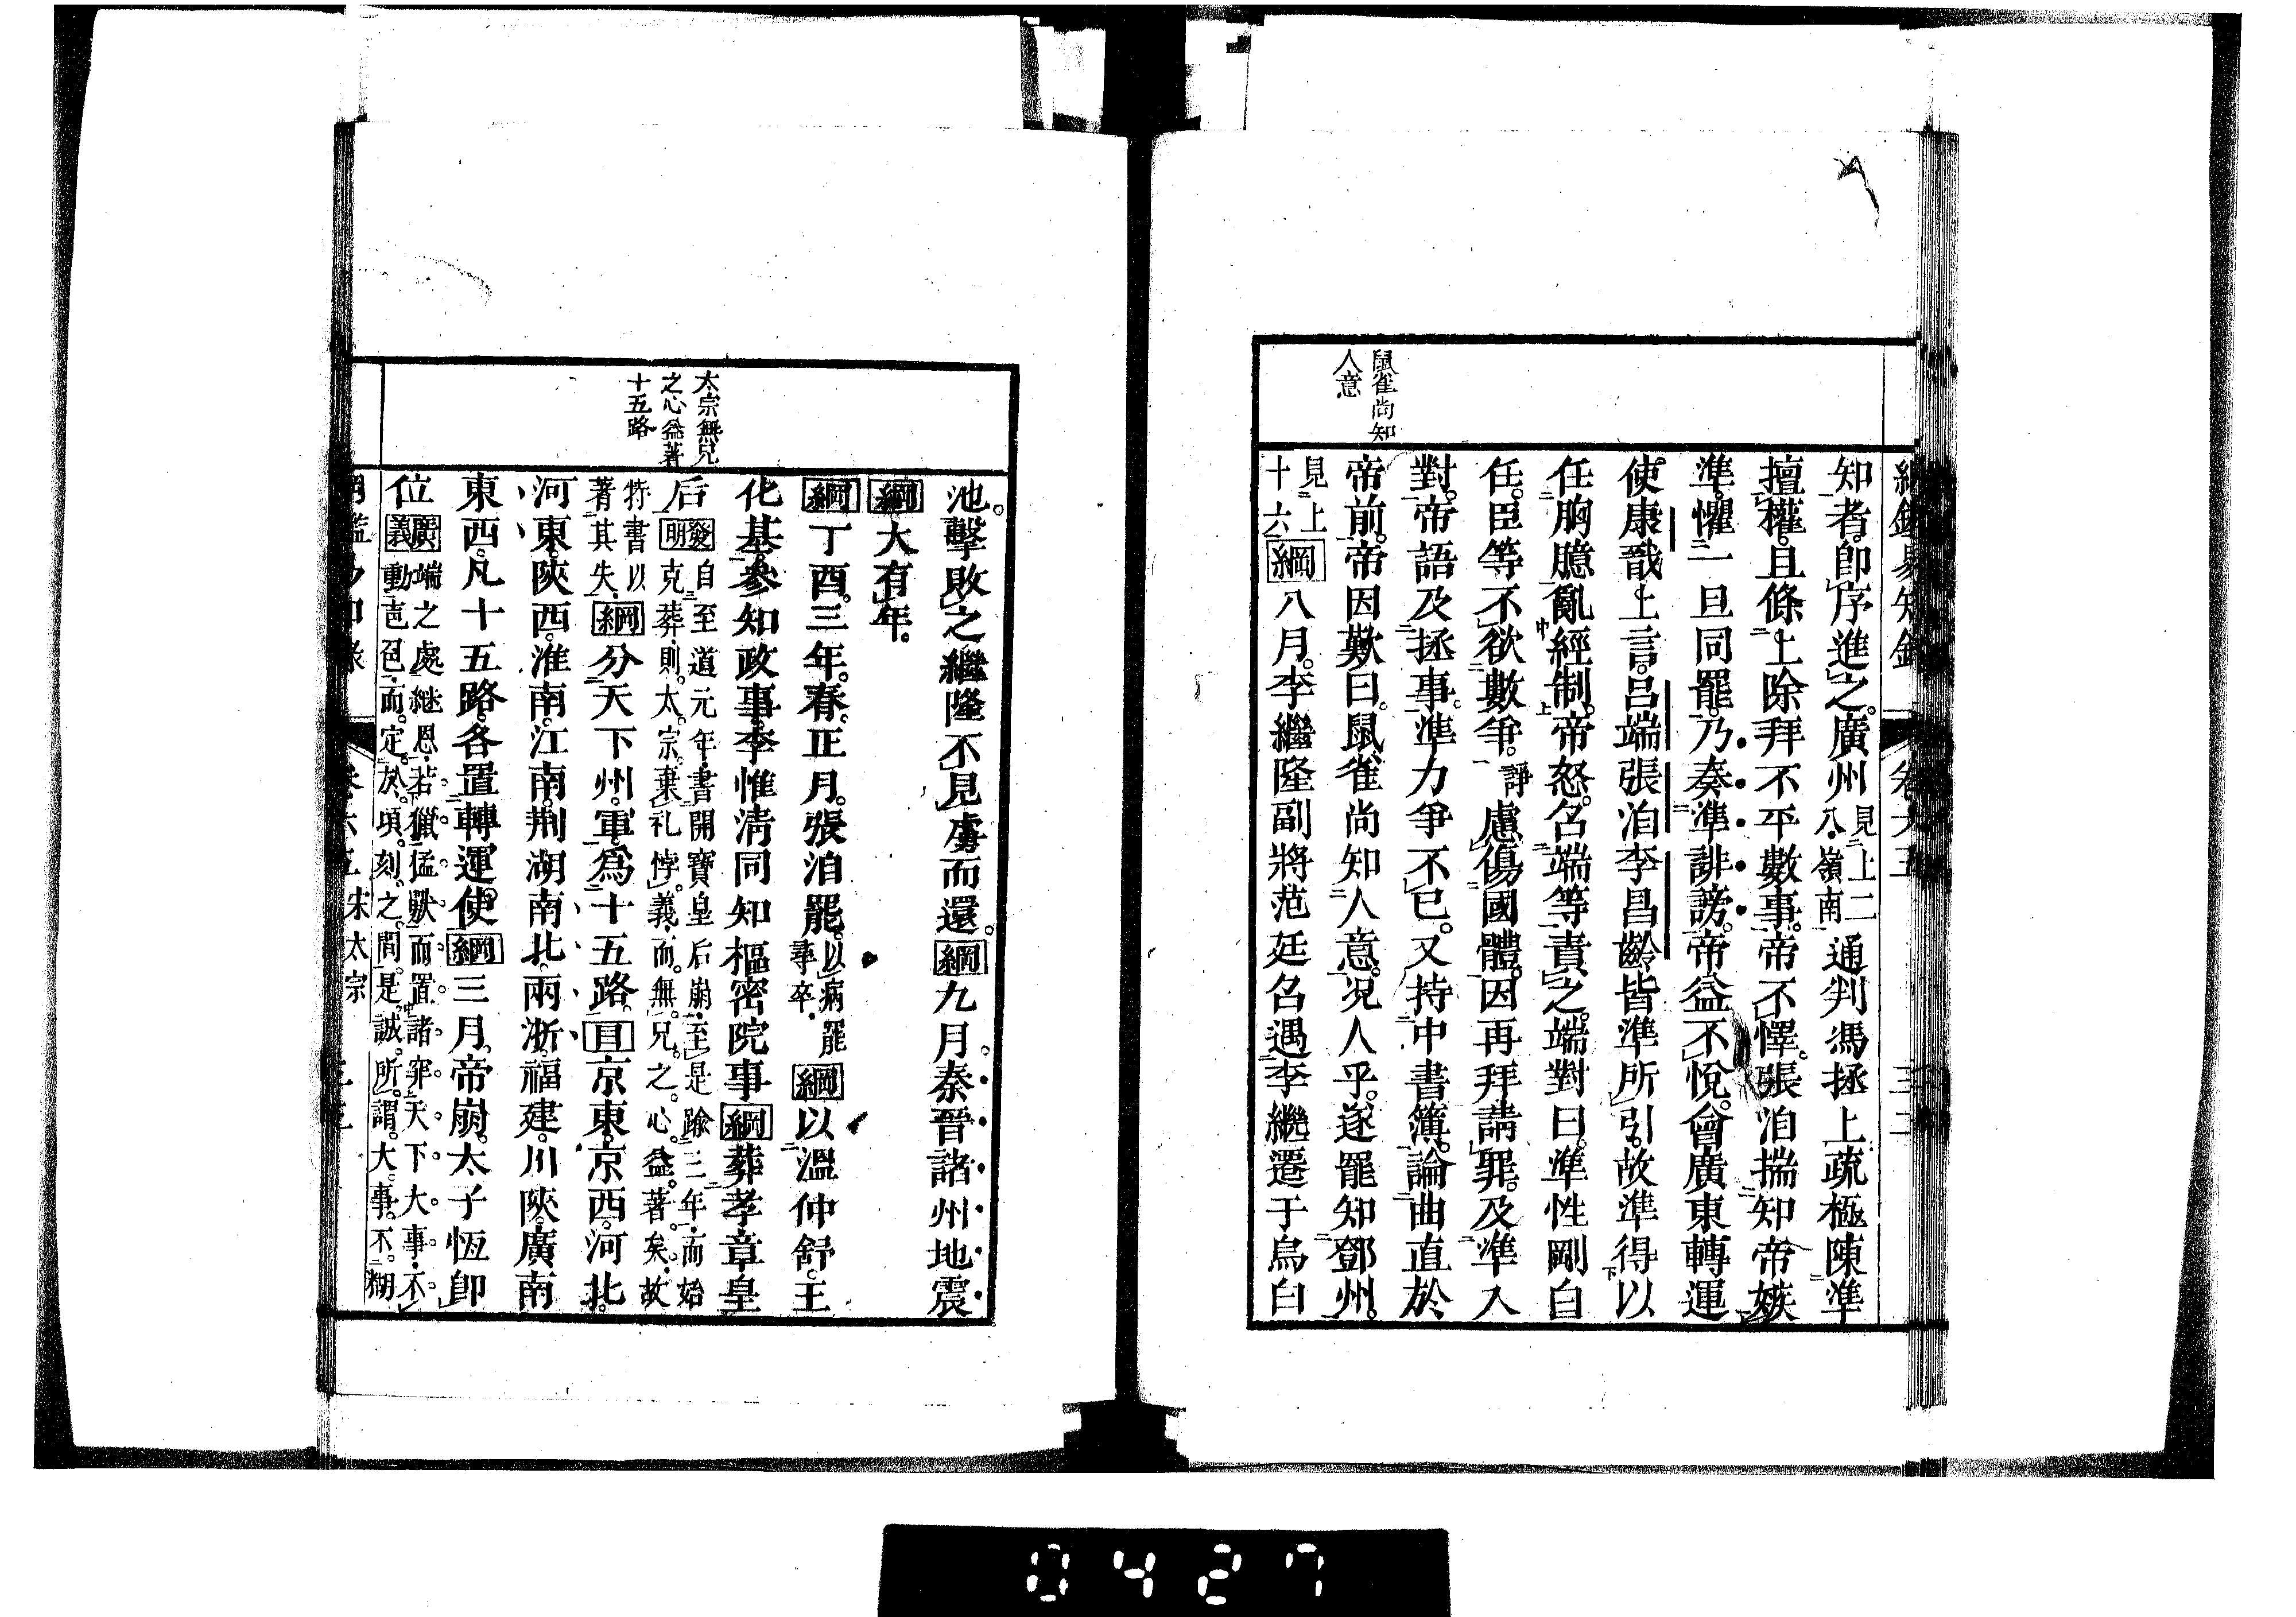 鼠雀尚知
人意
知者。卽序進之。廣州見上二八・嶺南通判馮拯上疏極陳準
擅權。且條上除拜不平數事。帝不懌。張洎揣知帝嫉
準。懼一旦同罷。乃奏準誹謗。帝益不悅。會廣東轉運
使康戩上言。呂端張洎李昌齡皆準所引。故準得以
任胸臆亂經制。帝怒。召端等責之。端對曰。準性剛自
任。臣等不欲數爭。諍慮傷國體。因再拜請罪。及準入
對。帝語及拯事。準力爭不已。又持中書簿。論曲直於
帝前。帝因歎曰。鼠雀尚知人意。况人乎。遂罷知鄧州。
見上十六綱八月。李繼隆副將范廷召遇李繼遷于烏白
太宗無兄
之心益著
十五路
池。擊敗之繼隆不見虜而還。綱九月。秦晉諸州地震
綱大有年。
綱丁酉。三年。春。正月。張洎罷。以病罷尋卒・綱以溫仲舒。王
化基。參知政事。李惟淸同知樞密院事綱葬孝章皇
后發明自至道元年・書開寶皇后崩・至是踰三年・而始克葬・則。太。宗。棄礼悖。義・而。無。兄。之。心。益。著。矣・故
特書以著其失・綱分天下州。軍。爲十五路。目京東。京西。河北。
河東。陝西。淮南。江南。荆湖南北。兩浙。福建。川陝。廣南
東西。凡十五路。各置轉運使。綱三月。帝崩。太子恆卽
位廣義端之處継恩・若獵猛獸而置諸穽天下大事・不動声色・而。定於。頃。刻。之。間。是。誠。所。謂。大。事。不。糊
卷六五 宋太宗